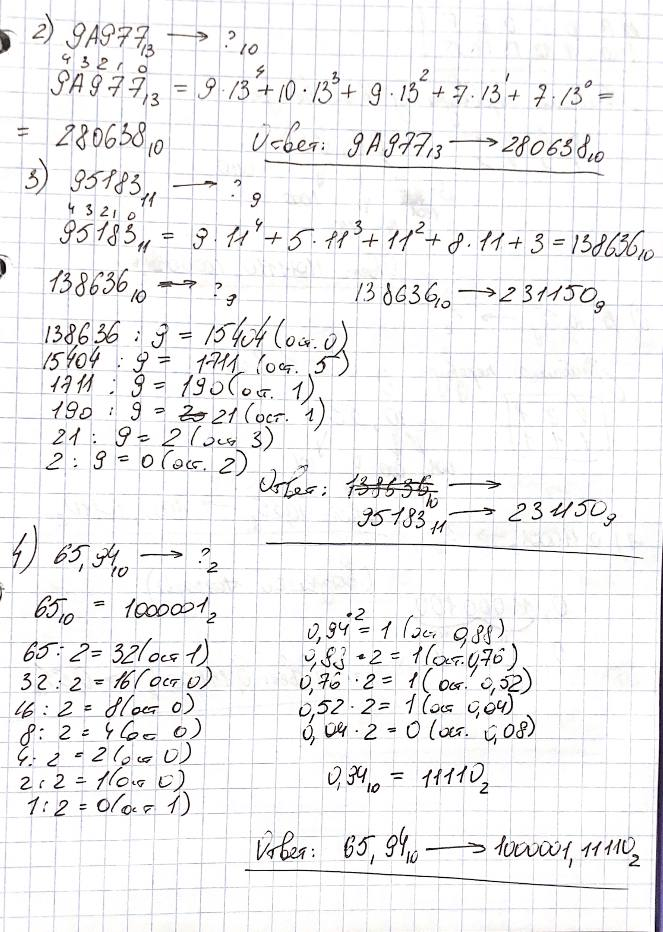 2) 9A977₁₃ → ?₁₀
4 3 2 1 0
9A977₁₃ = 9·13⁴+10·13³+ 9·13²+7·13¹+ 7·13⁰ =
= 280638₁₀ Ответ: 9A977₁₃ → 280638₁₀
3) 95183₁₁ → ?₉
4 3 2 1 0
95183₁₁ = 9·11⁴+5·11³+11²+8·11+3 = 138636₁₀
138636₁₀ → ?₉ 138636₁₀ → 231150₉
138636 : 9 = 15404 (ост. 0)
15404 : 9 = 1711 (ост. 5)
1711 : 9 = 190 (ост. 1)
190 : 9 = 21 (ост. 1)
21 : 9 = 2 (ост 3)
2 : 9 = 0 (ост. 2)
Ответ: 138636₁₀ →
95183₁₁ → 231150₉
4) 65,94₁₀ → ?₂
65₁₀ = 1000001₂
65 : 2 = 32 (ост 1)
32 : 2 = 16 (ост 0)
16 : 2 = 8 (ост 0)
8 : 2 = 4 (ос 0)
4 : 2 = 2 (ост 0)
2 : 2 = 1 (ост 0)
1 : 2 = 0 (ост 1)
0,94·2 = 1 (ост 0,88)
0,83·2 = 1 (ост. 0,76)
0,76 · 2 = 1 (ост. 0,52)
0,52 · 2 = 1 (ост 0,04)
0,04 · 2 = 0 (ост. 0,08)
0,94₁₀ = 11110₂
Ответ: 65,94₁₀ → 1000001,11110₂